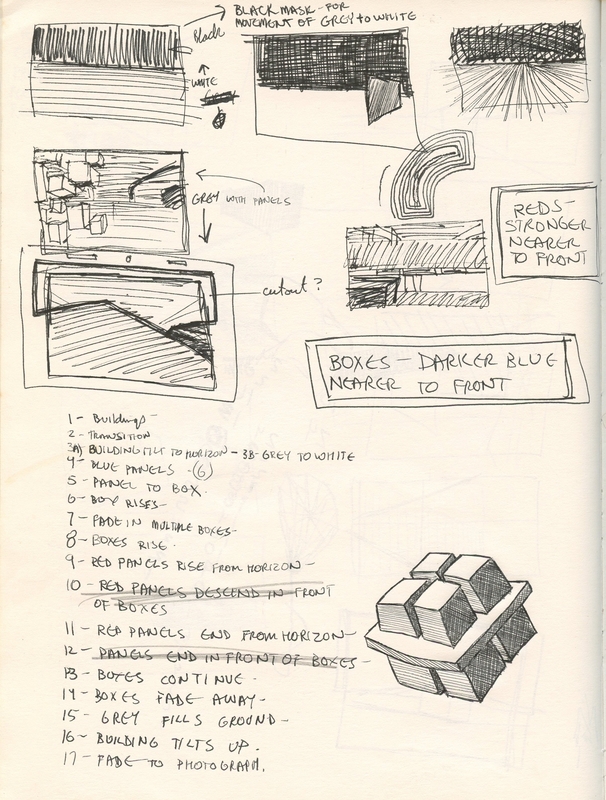 BLACK MASK - FOR
MOVEMENT OF GREY to WHITE
Black
WHITE
GREY WITH PANELS
cutout?
REDS -
STRONGER
NEARER
TO FRONT
BOXES - DARKER BLUE
NEARER TO FRONT
1 - Buildings -
2 - TRANSITION
3A) BUILDING TILT TO HORIZON - 3B - GREY TO WHITE
4 - BLUE PANELS - (6)
5 - PANEL TO BOX.
6 - BOX RISES -
7 - FADE IN MULTIPLE BOXES -
8 - BOXES RISE -
9 - RED PANELS RISE FROM HORIZON -
10 - RED PANELS DESCEND IN FRONT
OF BOXES
11 - RED PANELS END FROM HORIZON -
12 - PANELS END IN FRONT OF BOXES -
13 - BOXES CONTINUE -
14 - BOXES FADE AWAY -
15 - GREY FILLS GROUND -
16 - BUILDING TILTS UP.
17 - FADE TO PHOTOGRAPH.